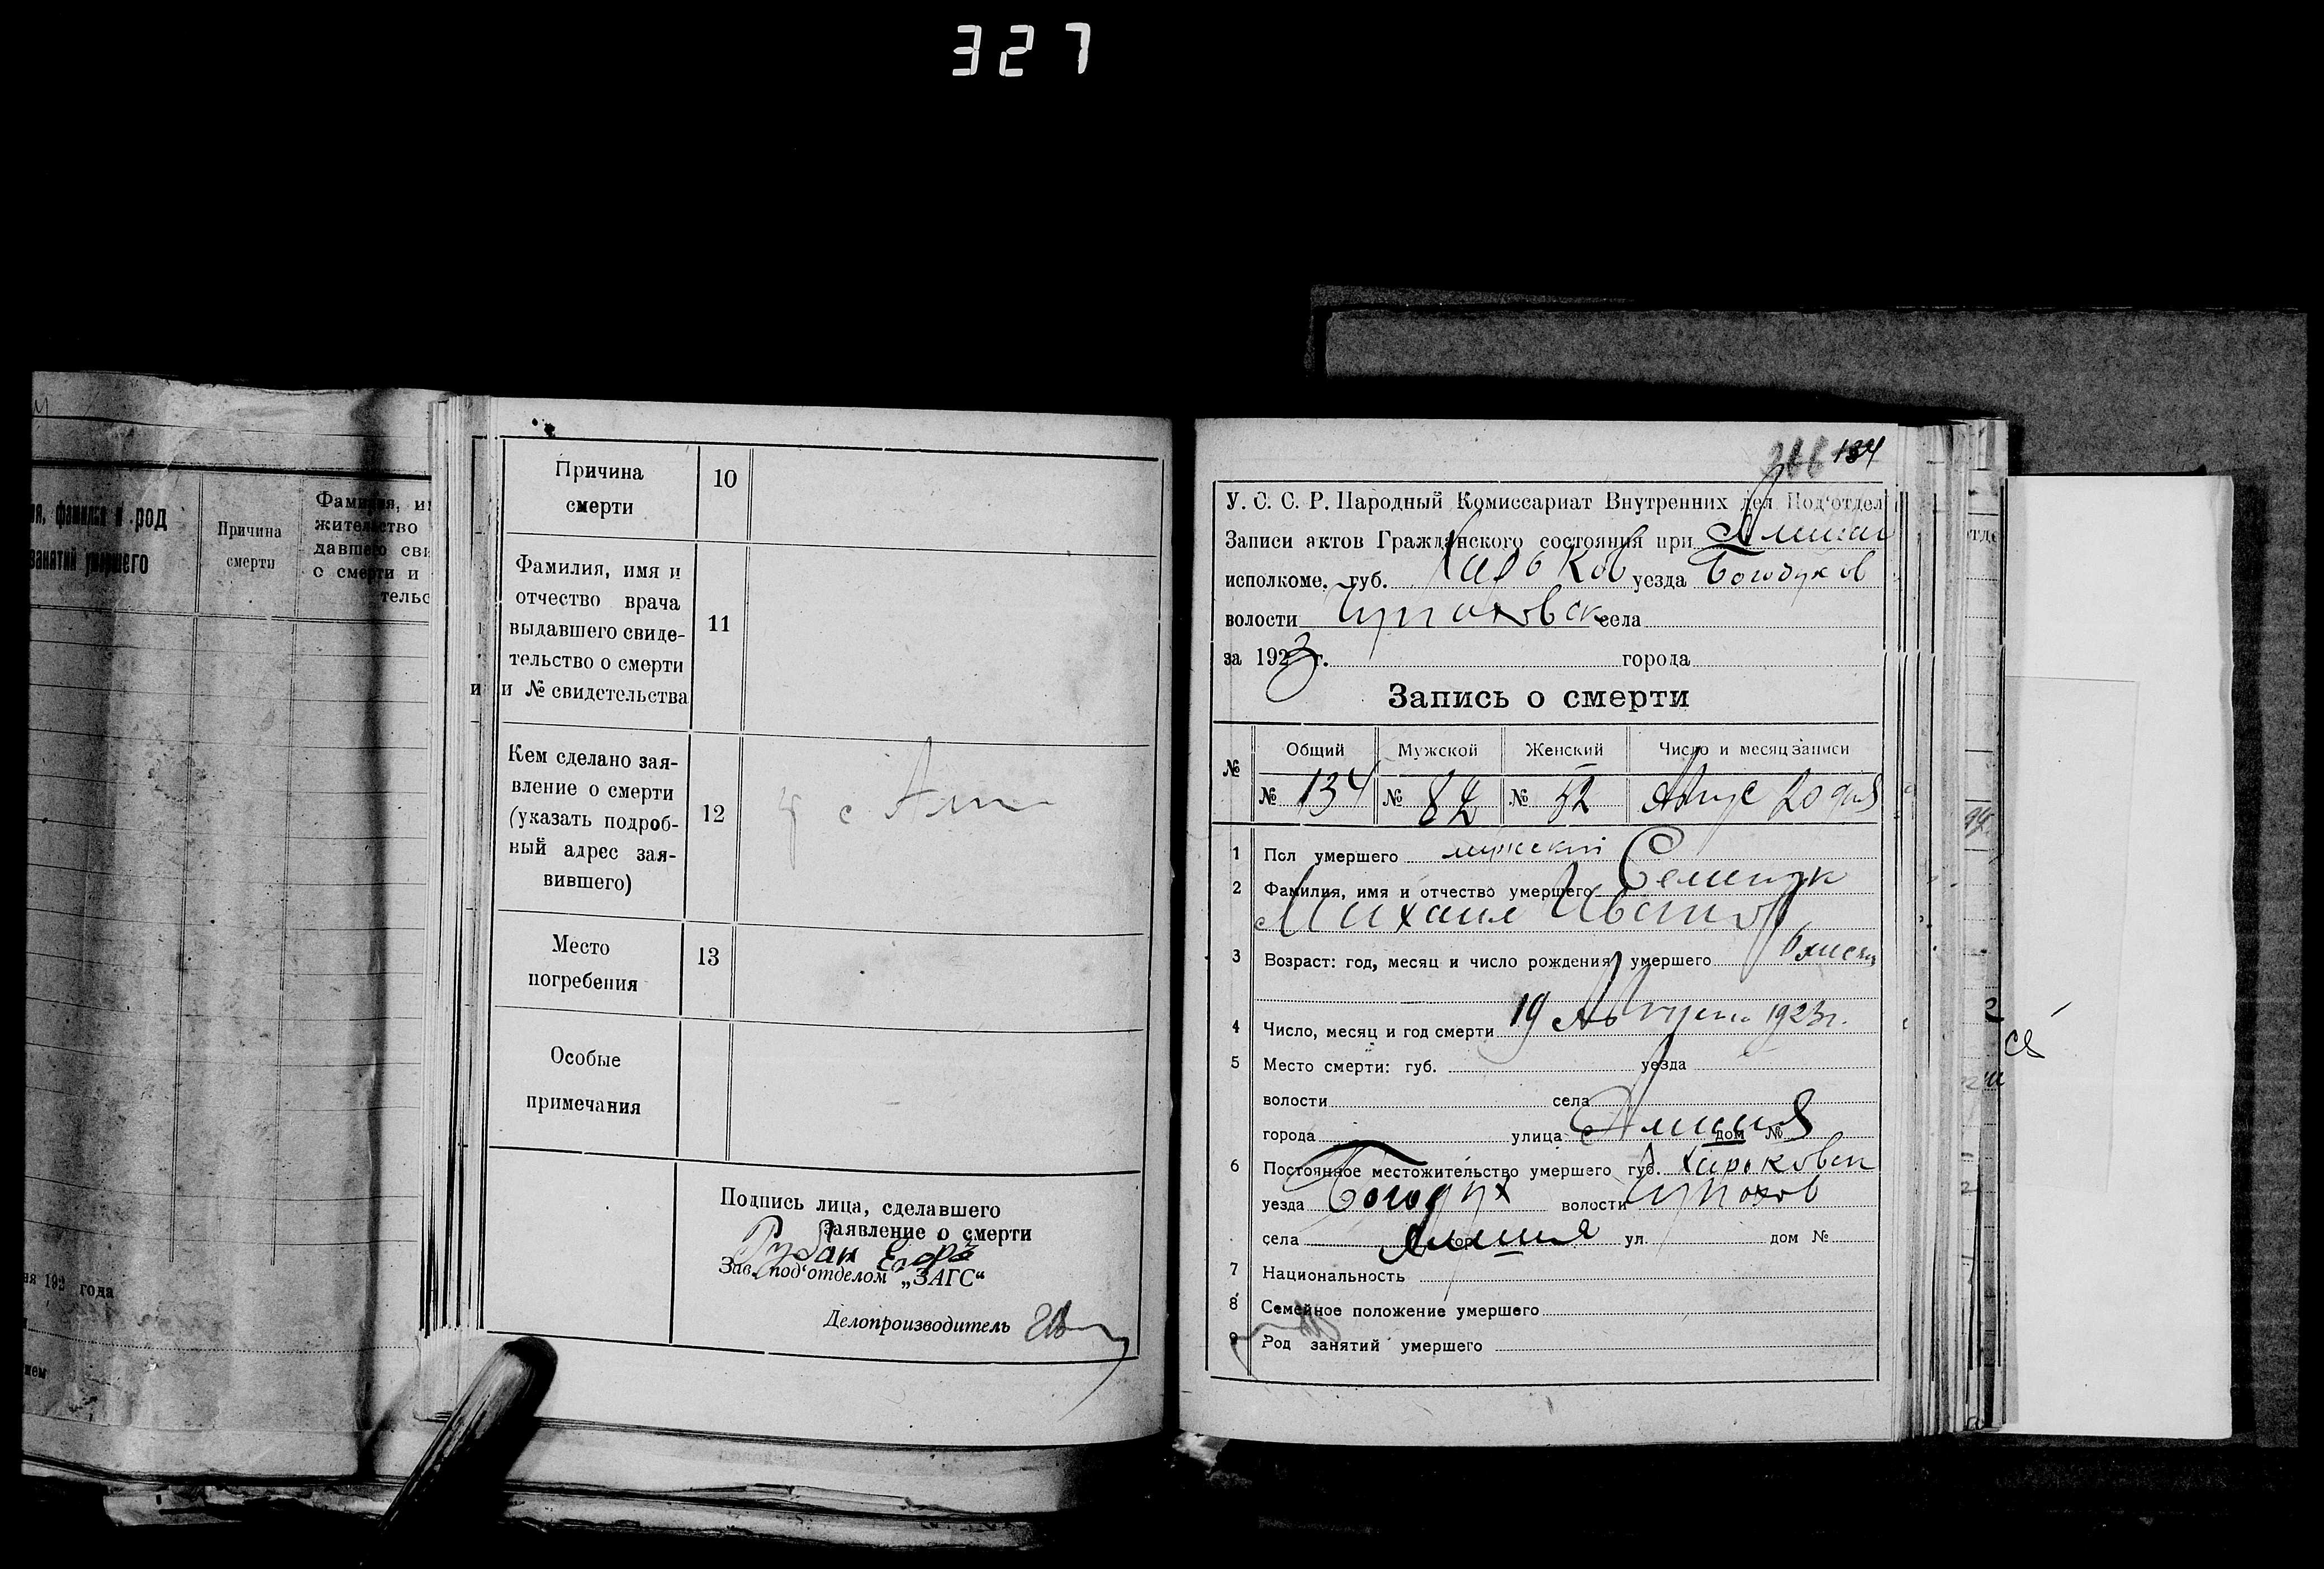 327
род
занятий умершего
Причина
смерти
Фамилия,
жительство
давшего
о смерти и
192 года
Причина
смерти
10
Фамилия, имя и
отчество врача
выдавшего свиде-
тельство о смерти
и № свидетельства
11
Кем сделано зая-
вление о смерти
(указать подроб-
ный адрес зая-
вившего)
12
с
Место
погребения
13
Особые
примечания
Подпись лица, сделавшего
заявление о смерти
Рубан Егоръ
Зав. под‘отделом „ЗАГС“
Делопроизводитель
134
У. С. С. Р. Народный Комиссариат Внутренних дел Под‘отдел
Записи актов Гражданского состояния при
исполкоме. губ. Харьков уезда Богодухов
волости села
за 1923 г. города
Запись о смерти
№ Общий Мужской Женский Число и месяц записи
№ 134 № 82 № 52 Авгус 20 дня
1 Пол умершего мужский
2 Фамилия, имя и отчество умершего
Михаил Иванов
3 Возраст: год, месяц и число рождения умершего 6 месяц
4 Число, месяц и год смерти 19 Августа 1923 г.
5 Место смерти: губ. уезда
волости села
города улица дом №
6 Постоянное местожительство умершего губ. Харьковск
уезда Богодух волости
села гор. ул. дом №
7 Национальность
8 Семейное положение умершего
9 Род занятий умершего